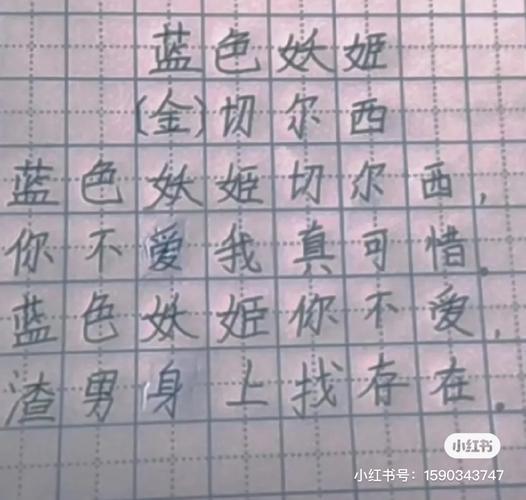 蓝色妖姬
(金)切尔西
蓝色妖姬切尔西,
你不爱我真可惜。
蓝色妖姬你不爱,
渣男身上找存在。
小红书
小红书号：1590343747